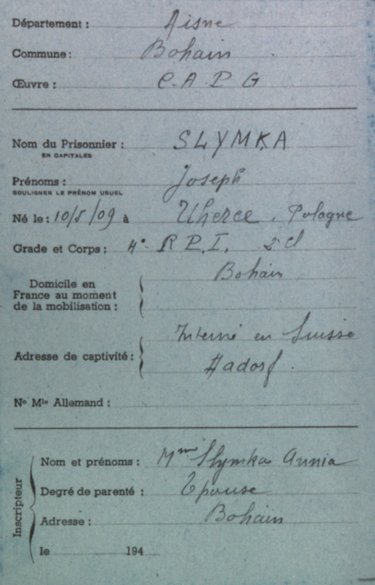 Département : Aisne
Commune : Bohain
Œuvre : C.A.P.G
Nom du Prisonnier : SLYMKA
EN CAPITALES
Prénoms : Joseph
SOULIGNER LE PRÉNOM USUEL
Né le : 10/5/09 à Uherce. Pologne
Grade et Corps : 4e R.P.I. 2d
Domicile en
France au moment
de la mobilisation : Bohain
Adresse de captivité : Interné en Suisse
Hadorf.
No Mle Allemand :
Inscripteur
Nom et prénoms : Mme Slymka Annia
Degré de parenté : Epouse
Adresse : Bohain
le 194